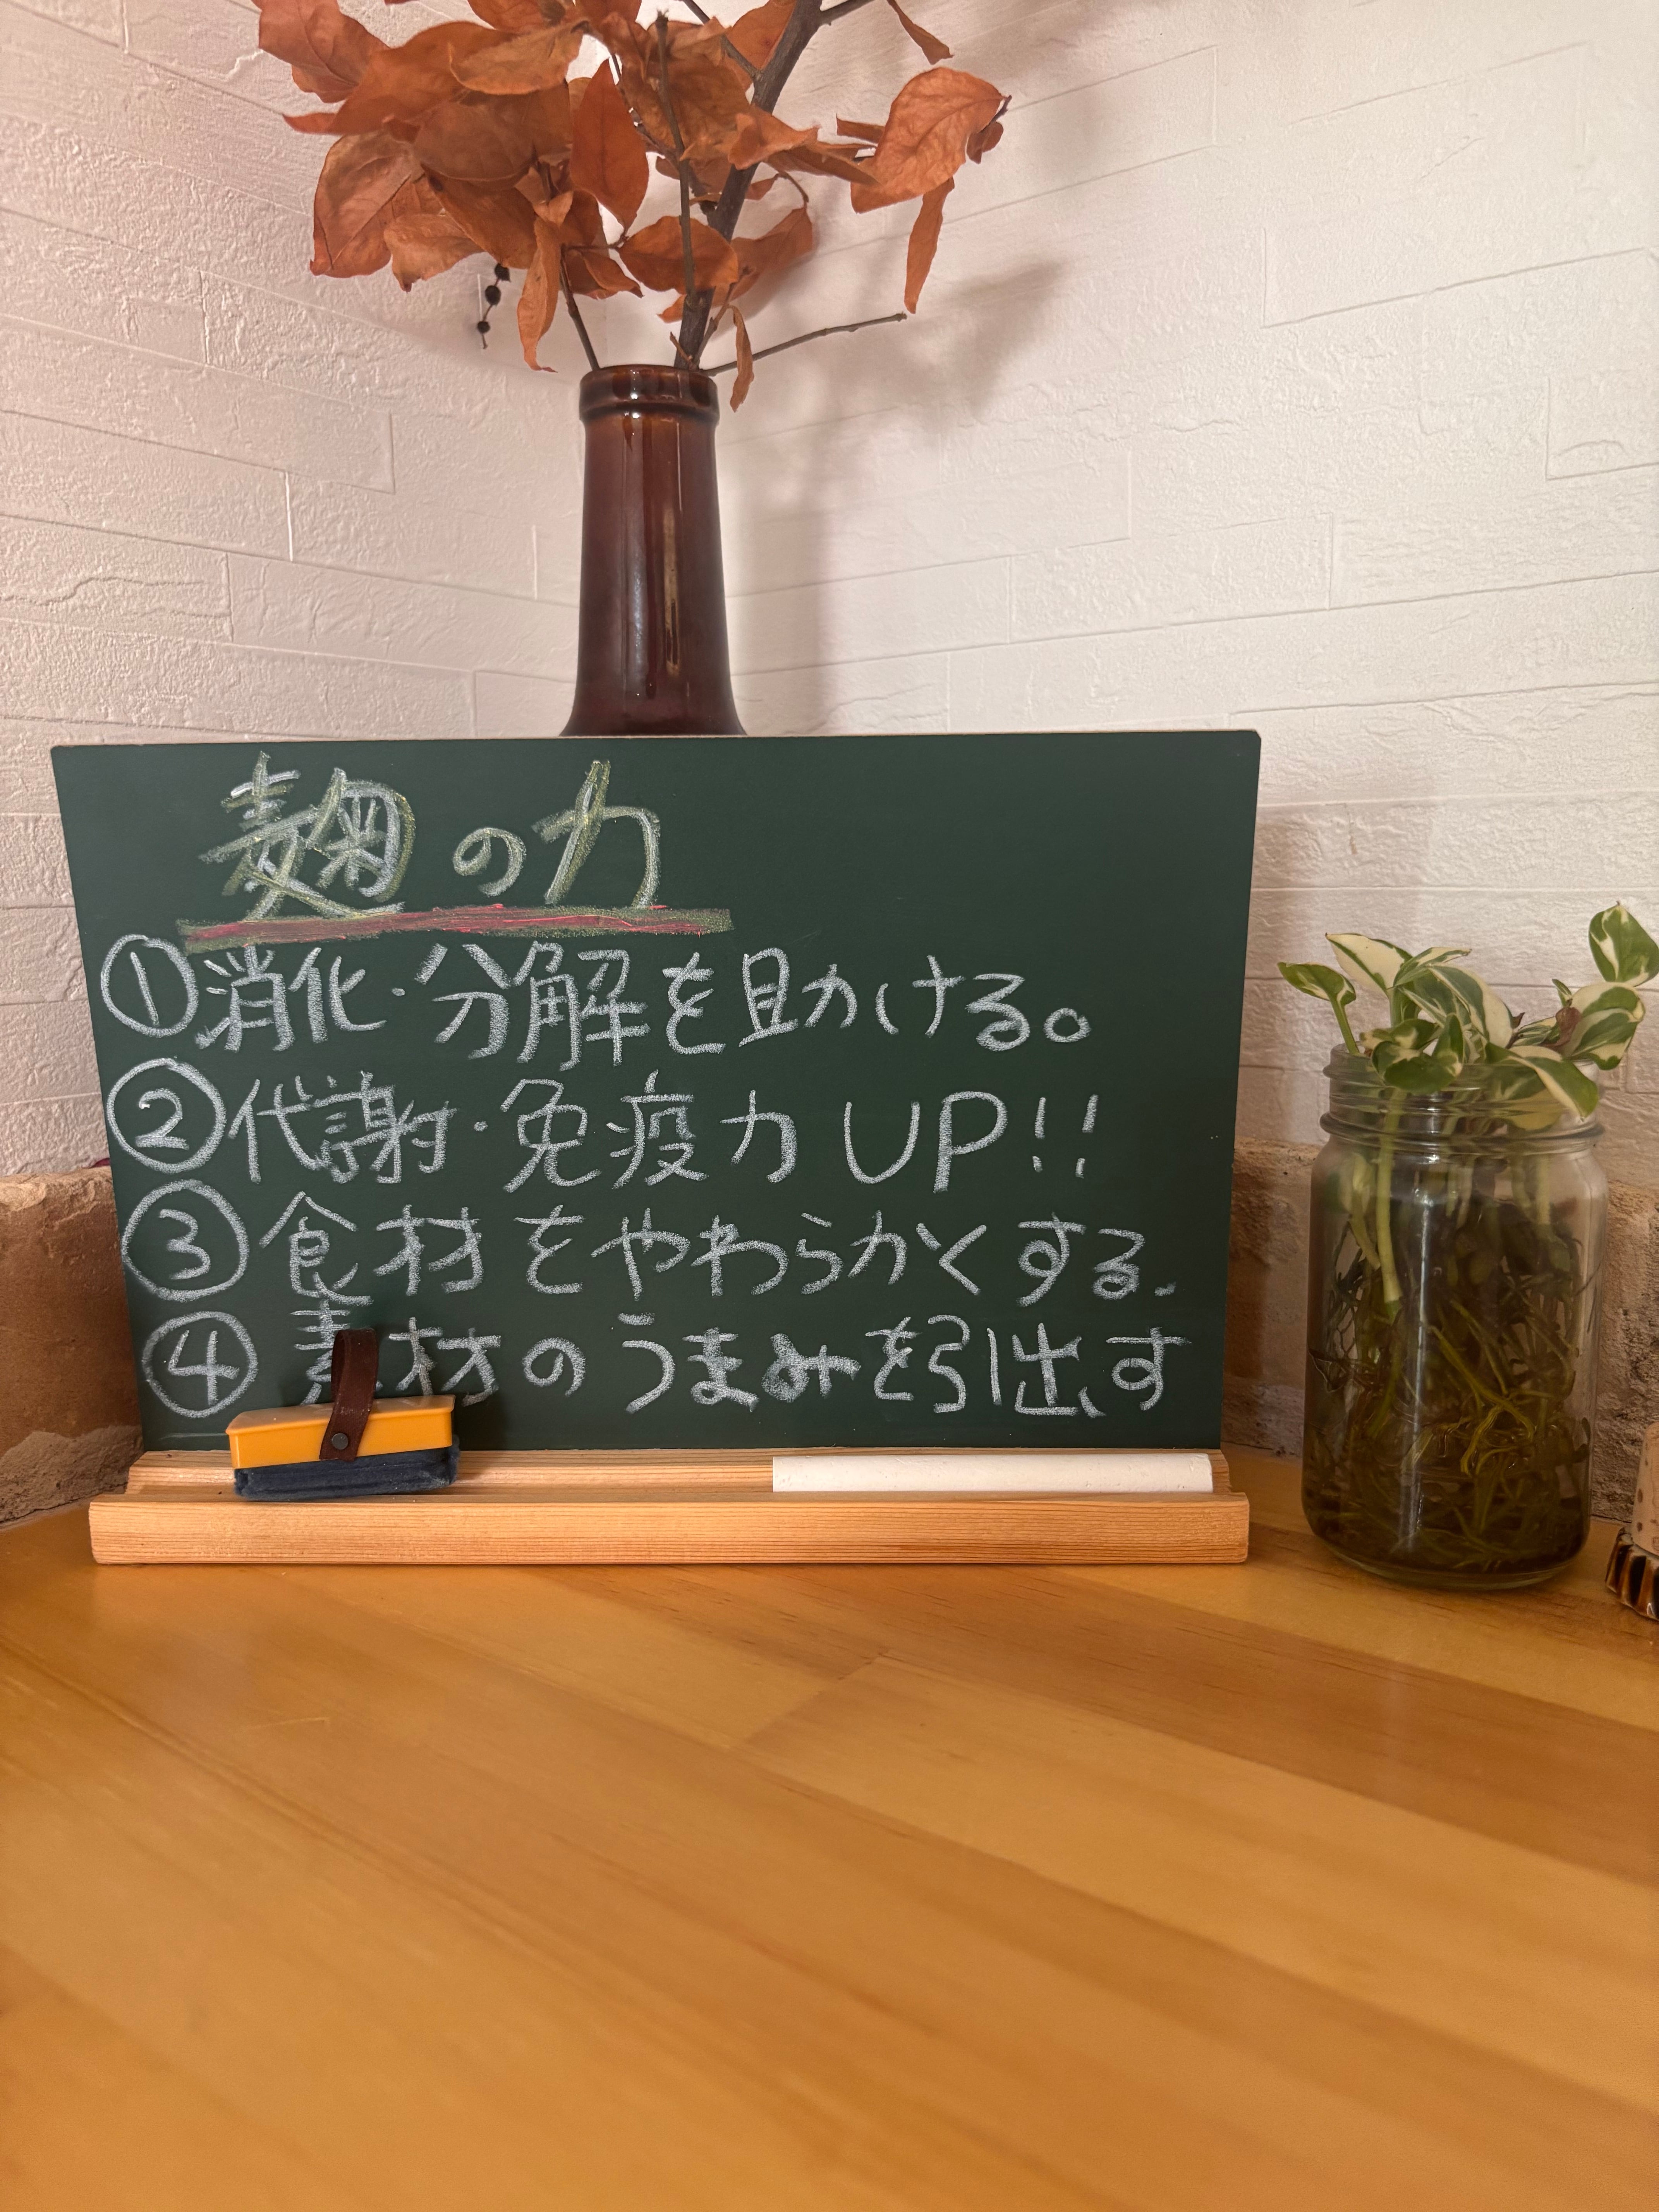 麹の力
①消化・分解を助ける。
②代謝・免疫力UP!!
③食材をやわらかくする.
④素材のうまみを引出す